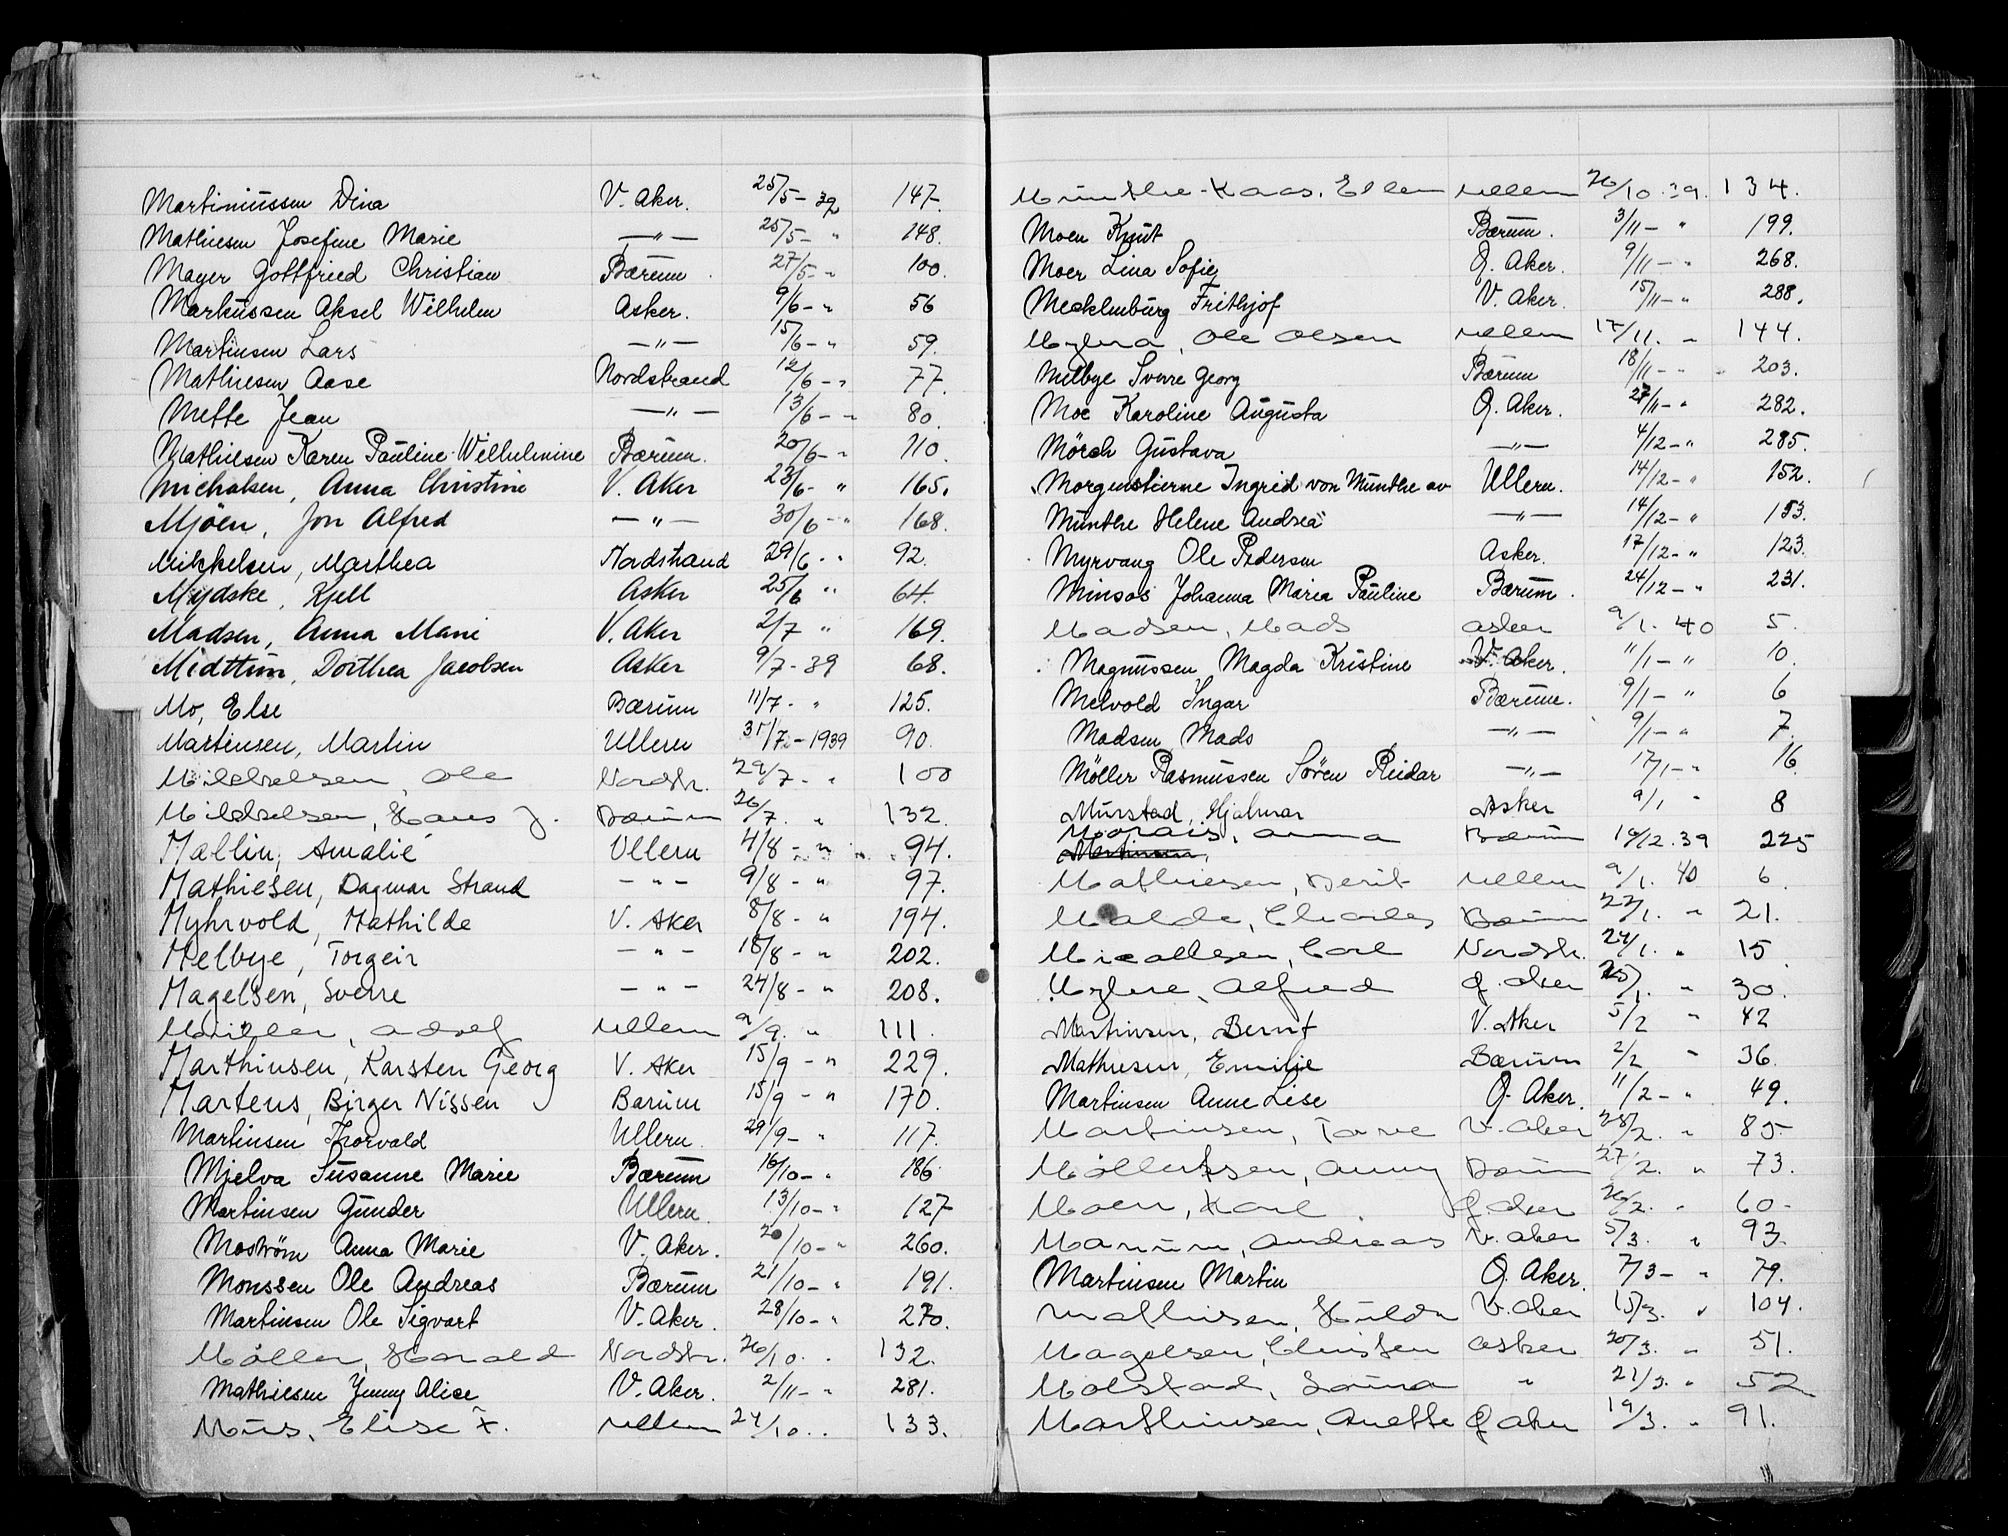 Martiniussen Dina V. Aker. 25/5 - 39 147
Mathiesen Josefine Marie —"— 25/5 - " 148.
Mayer Gottfried Christian Bærum 27/5 - " 100.
Markussen Aksel Wilhelm Asker. 9/6 - " 56
Martinsen Lars —"— 15/6 - " 59.
Mathiesen Aase Nordstrand 12/6 - " 77.
Mette Jean —"— 13/6 - " 80.
Mathiesen Karen Pauline Wilhelmine Bærum. 20/6 - " 110.
Michalsen, Anna Christine V. Aker 23/6 - " 165.
Mjöen, Jon Alfred —"— 30/6 - " 168.
Mikkelsen, Marthea Nordstrand 29/6 - " 92.
Mydske, Kjell Asker 25/6 " 64.
Madsen, Anna Marie V. Aker 2/7 " 169.
Midttun, Dorthea Jacobsen Asker 9/7 - 39 68.
Mo, Else Bærum 11/7 - " 125.
Martinsen, Martin Ullern 31/7 - 1939 90.
Mikkelsen, Ole Nordstr. 29/7 - " 100
Mikkelsen, Hans J. Bærum 26/7. " 132.
Mallin, Amalie Ullern 4/8 - " 94.
Mathiesen, Dagmar Strand - " - 9/8 - " 97.
Myhrvold, Mathilde V. Aker 8/8 - " 194.
Melbye, Torgeir - " - 18/8 - " 202.
Magelsen, Sverre - " - 24/8 - " 208.
Müller, Adolf Ullern 9/9. " 111.
Marthinsen, Karsten Georg V. Aker 15/9 - " 229.
Martens, Birger Nissen Bærum 15/9 - " 170.
Martinsen Thorvald Ullern. 29/9 - " 117.
Mjelva Susanne Marie Bærum 16/10 - " 186
Martinsen Gunder Ullern. 13/10 - " 127
Moström Anna Marie V. Aker. 20/10 - " 260.
Monssen Ole Andreas Bærum 21/10 - " 191.
Martinsen Ole Sigvart V. Aker. 28/10 - " 270.
Möller, Harald Nordstr. 26/10. " 132.
Mathiesen Jenny Alice V. Aker. 2/11 - " 281.
Mus, Elise F. Ullern 24/10. " 133.
Münthe-Kaas, Ellen Ullern 26/10 39. 134.
Moen Knut Bærum. 3/11 - " 199.
Moer Lina Sofie Ø. Aker. 9/11 - " 268.
Mecklenburg Frithjof V. Aker. 15/11 - " 288.
Myhra, Ole Olsen Ullern 17/11. " 144.
Melbye Sverre Georg Bærum 18/11 - " 203.
Moe Karoline Augusta Ø. Aker. 27/11 - " 282.
Mörch Gustava —"— 4/12 - " 285.
Morgenstierne Ingrid von Munthe av Ullern. 14/12 - " 152.
Munthe Helene Andrea —"— 14/12 - " 153.
Myrvang Ole Pedersen Asker. 17/12 - " 123.
Minsås Johanna Maria Pauline Bærum. 24/12 - " 231.
Madsen, Mads Asker 9/1. 40 5.
Magnussen Magda Kristine V. Aker. 11/1 - " 10.
Melvold Ingar Bærum. 9/1 - " 6
Madsen Mads —"— 9/1 - " 7.
Möller Rasmussen Sören Reidar —"— 17/1 - " 16.
Murstad, Hjalmar Asker 9/1 " 8
Martinsen,
Anna Bærum 16/12. 39 225
Mathiesen, Berit Ullern 9/1. 40 6.
Malde, Charles Bærum 22/1. " 21.
Micalsen, Carl Nordstr. 24/1. " 15
Myhre, Alfred Ø. Aker 25/1. " 30.
Martinsen, Bernt V. Aker 5/2 " 42
Mathiesen, Emilie Bærum 2/2 " 36.
Martinsen Anne Lise Ø. Aker. 11/2 - " 49.
Martinsen, Tove V. Aker 28/2. " 85
Anny Bærum 27/2. " 73.
Moen, Karl Ø. Aker 26/2. " 60
Andreas V. Aker 5/3. " 93.
Martinsen Martin Ø. Aker. 7/3 - " 79.
Mathisen, Hulda V. Aker 15/3. " 104.
Magelsen, Christen Asker 20/3. " 51.
Molstad, Laura " 21/3. " 52
Marthinsen, Anette Ø Aker 19/3. " 91.